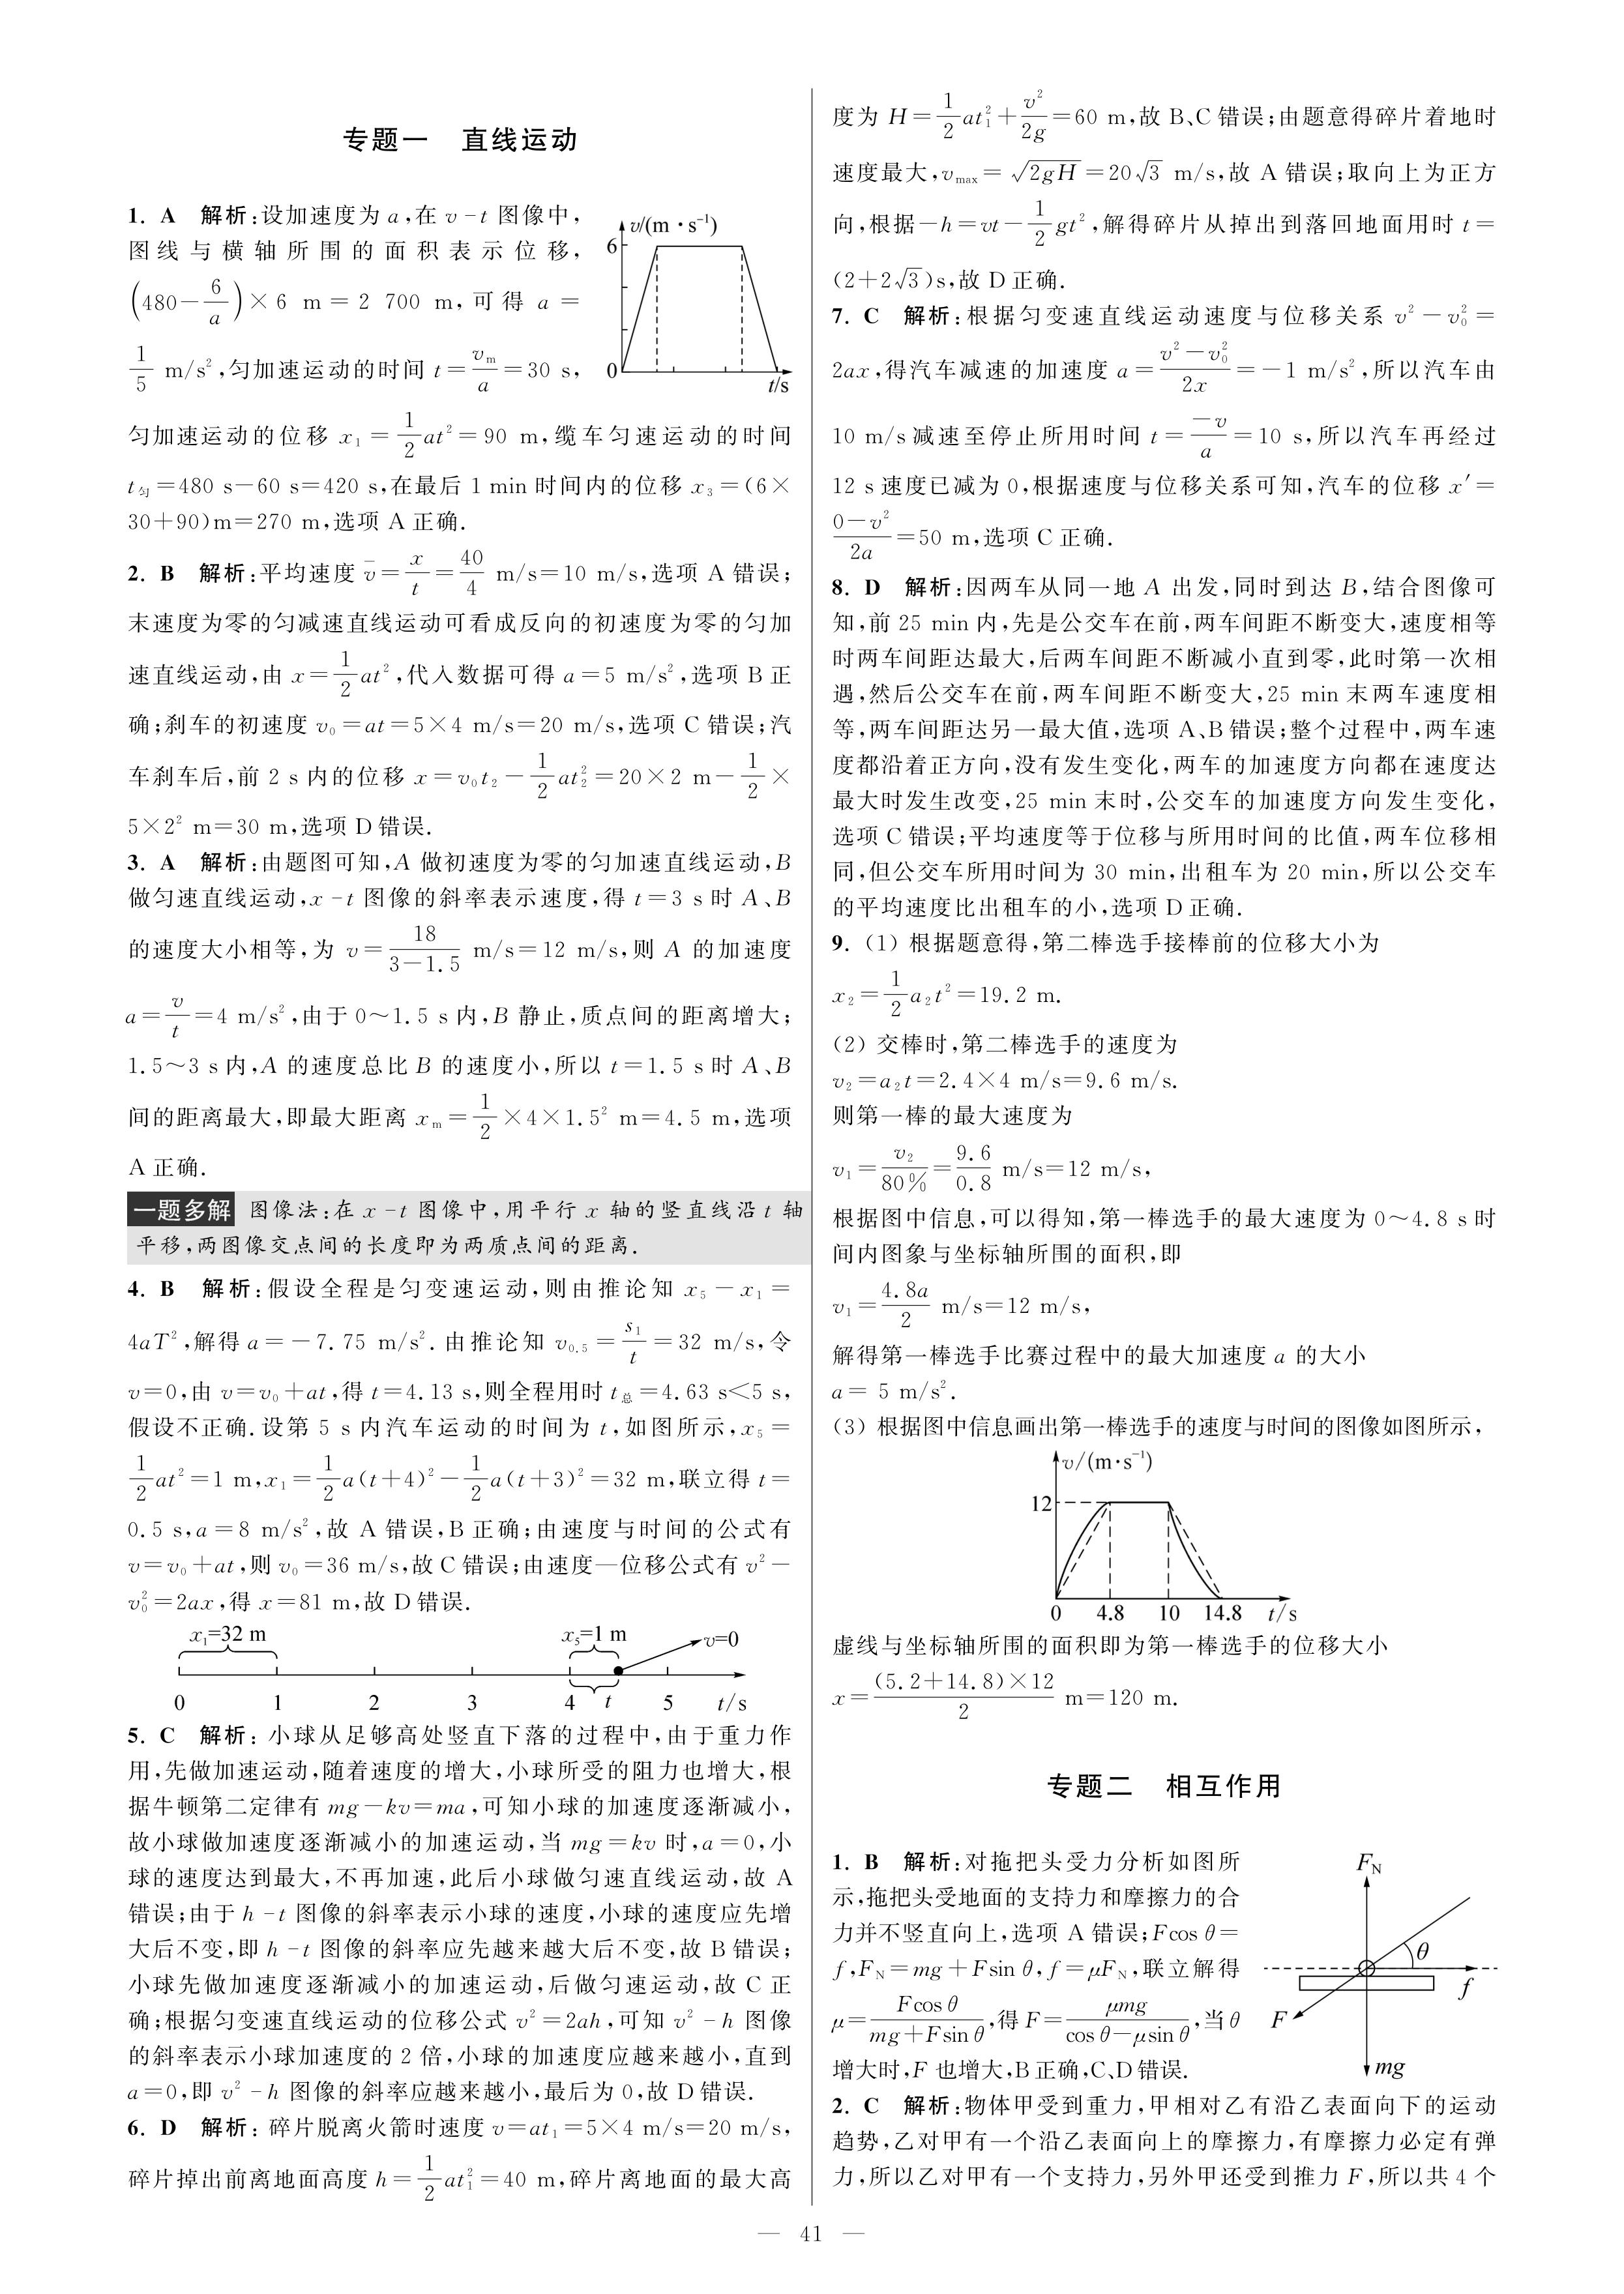 专题一　直线运动
1. A　解析:设加速度为 a,在 v-t 图像中,
图线与横轴所围的面积表示位移,
(480-6/a)×6 m=2 700 m,可得 a=
1/5 m/s²,匀加速运动的时间 t=vₘ/a=30 s,
v/(m·s⁻¹)
6
0
t/s
匀加速运动的位移 x₁=1/2at²=90 m,缆车匀速运动的时间
t匀=480 s-60 s=420 s,在最后 1 min 时间内的位移 x₃=(6×
30+90)m=270 m,选项 A 正确.
2. B　解析:平均速度 v̄=x/t=40/4 m/s=10 m/s,选项 A 错误;
末速度为零的匀减速直线运动可看成反向的初速度为零的匀加
速直线运动,由 x=1/2at²,代入数据可得 a=5 m/s²,选项 B 正
确;刹车的初速度 v₀=at=5×4 m/s=20 m/s,选项 C 错误;汽
车刹车后,前 2 s 内的位移 x=v₀t₂-1/2at₂²=20×2 m-1/2×
5×2² m=30 m,选项 D 错误.
3. A　解析:由题图可知,A 做初速度为零的匀加速直线运动,B
做匀速直线运动,x-t 图像的斜率表示速度,得 t=3 s 时 A、B
的速度大小相等,为 v=18/(3-1.5) m/s=12 m/s,则 A 的加速度
a=v/t=4 m/s²,由于 0～1.5 s 内,B 静止,质点间的距离增大;
1.5～3 s 内,A 的速度总比 B 的速度小,所以 t=1.5 s 时 A、B
间的距离最大,即最大距离 xₘ=1/2×4×1.5² m=4.5 m,选项
A 正确.
一题多解 图像法:在 x-t 图像中,用平行 x 轴的竖直线沿 t 轴
平移,两图像交点间的长度即为两质点间的距离.
4. B　解析:假设全程是匀变速运动,则由推论知 x₅-x₁=
4aT²,解得 a=-7.75 m/s². 由推论知 v₀.₅=s₁/t=32 m/s,令
v=0,由 v=v₀+at,得 t=4.13 s,则全程用时 t总=4.63 s<5 s,
假设不正确.设第 5 s 内汽车运动的时间为 t,如图所示,x₅=
1/2at²=1 m,x₁=1/2a(t+4)²-1/2a(t+3)²=32 m,联立得 t=
0.5 s,a=8 m/s²,故 A 错误,B 正确;由速度与时间的公式有
v=v₀+at,则 v₀=36 m/s,故 C 错误;由速度—位移公式有 v²-
v₀²=2ax,得 x=81 m,故 D 错误.
x₁=32 m　x₅=1 m　v=0
0　1　2　3　4　t　5　t/s
5. C　解析: 小球从足够高处竖直下落的过程中,由于重力作
用,先做加速运动,随着速度的增大,小球所受的阻力也增大,根
据牛顿第二定律有 mg-kv=ma,可知小球的加速度逐渐减小,
故小球做加速度逐渐减小的加速运动,当 mg=kv 时,a=0,小
球的速度达到最大,不再加速,此后小球做匀速直线运动,故 A
错误;由于 h-t 图像的斜率表示小球的速度,小球的速度应先增
大后不变,即 h-t 图像的斜率应先越来越大后不变,故 B 错误;
小球先做加速度逐渐减小的加速运动,后做匀速运动,故 C 正
确;根据匀变速直线运动的位移公式 v²=2ah,可知 v²-h 图像
的斜率表示小球加速度的 2 倍,小球的加速度应越来越小,直到
a=0,即 v²-h 图像的斜率应越来越小,最后为 0,故 D 错误.
6. D　解析: 碎片脱离火箭时速度 v=at₁=5×4 m/s=20 m/s,
碎片掉出前离地面高度 h=1/2at₁²=40 m,碎片离地面的最大高
度为 H=1/2at₁²+v²/2g=60 m,故 B、C 错误;由题意得碎片着地时
速度最大,vmax=√(2gH)=20√3 m/s,故 A 错误;取向上为正方
向,根据-h=vt-1/2gt²,解得碎片从掉出到落回地面用时 t=
(2+2√3)s,故 D 正确.
7. C　解析:根据匀变速直线运动速度与位移关系 v²-v₀²=
2ax,得汽车减速的加速度 a=(v²-v₀²)/2x=-1 m/s²,所以汽车由
10 m/s 减速至停止所用时间 t=-v/a=10 s,所以汽车再经过
12 s 速度已减为 0,根据速度与位移关系可知,汽车的位移 x′=
(0-v²)/2a=50 m,选项 C 正确.
8. D　解析:因两车从同一地 A 出发,同时到达 B,结合图像可
知,前 25 min 内,先是公交车在前,两车间距不断变大,速度相等
时两车间距达最大,后两车间距不断减小直到零,此时第一次相
遇,然后公交车在前,两车间距不断变大,25 min 末两车速度相
等,两车间距达另一最大值,选项 A、B 错误;整个过程中,两车速
度都沿着正方向,没有发生变化,两车的加速度方向都在速度达
最大时发生改变,25 min 末时,公交车的加速度方向发生变化,
选项 C 错误;平均速度等于位移与所用时间的比值,两车位移相
同,但公交车所用时间为 30 min,出租车为 20 min,所以公交车
的平均速度比出租车的小,选项 D 正确.
9. (1) 根据题意得,第二棒选手接棒前的位移大小为
x₂=1/2a₂t²=19.2 m.
(2) 交棒时,第二棒选手的速度为
v₂=a₂t=2.4×4 m/s=9.6 m/s.
则第一棒的最大速度为
v₁=v₂/80%=9.6/0.8 m/s=12 m/s,
根据图中信息,可以得知,第一棒选手的最大速度为 0～4.8 s 时
间内图象与坐标轴所围的面积,即
v₁=4.8a/2 m/s=12 m/s,
解得第一棒选手比赛过程中的最大加速度 a 的大小
a= 5 m/s².
(3) 根据图中信息画出第一棒选手的速度与时间的图像如图所示,
v/(m·s⁻¹)
12
0　4.8　10　14.8　t/s
虚线与坐标轴所围的面积即为第一棒选手的位移大小
x=(5.2+14.8)×12/2 m=120 m.
专题二　相互作用
1. B　解析:对拖把头受力分析如图所
示,拖把头受地面的支持力和摩擦力的合
力并不竖直向上,选项 A 错误;Fcos θ=
f,F_N=mg+Fsin θ,f=μF_N,联立解得
μ=Fcos θ/(mg+Fsin θ),得 F=μmg/(cos θ-μsin θ),当 θ
增大时,F 也增大,B 正确,C、D 错误.
F_N
θ
f
F
mg
2. C　解析:物体甲受到重力,甲相对乙有沿乙表面向下的运动
趋势,乙对甲有一个沿乙表面向上的摩擦力,有摩擦力必定有弹
力,所以乙对甲有一个支持力,另外甲还受到推力 F,所以共 4 个
— 41 —